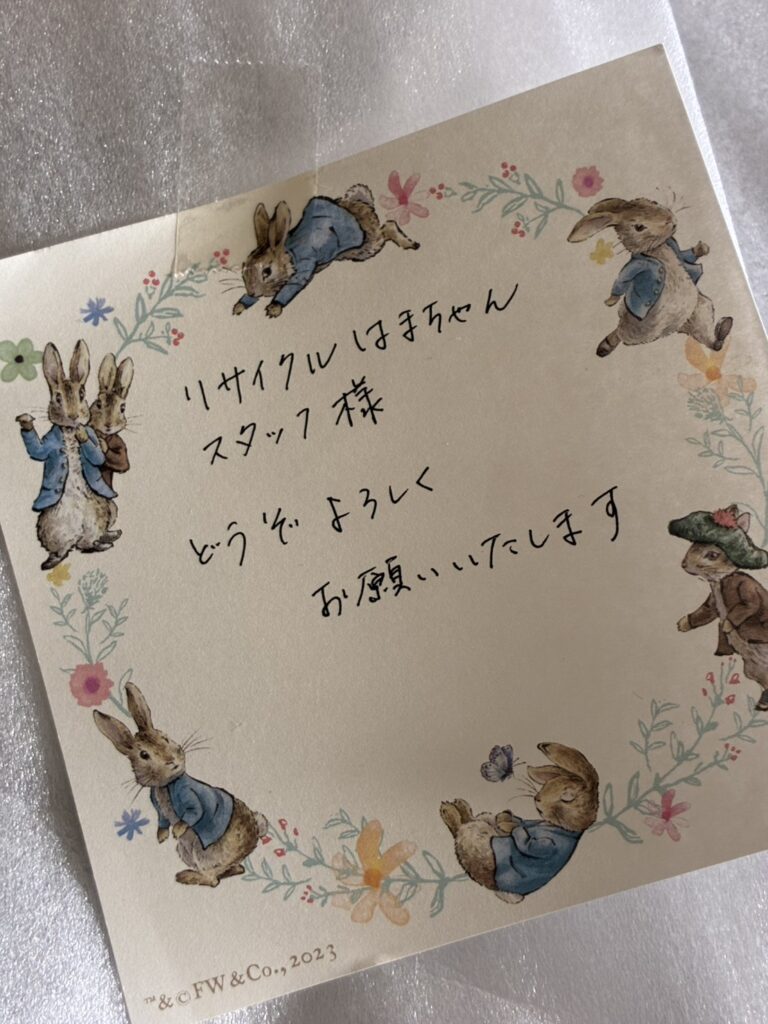 リサイクルはまちゃん
スタッフ様
どうぞよろしく
お願いいたします
™&©FW&Co.,2023